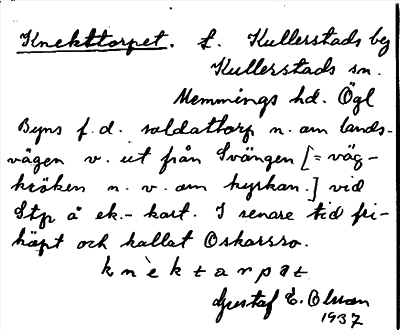 Knekttorpet. f. Kullerstads by
Kullerstads sn.
Memmings hd. Ögl
Byns f.d. soldattorp n. om lands-
vägen v. ut från Svängen [= väg-
kröken n. v. om kyrkan.] vid
Stp å ek.- kart. I senare tid fri-
köpt och kallat Oskarsro.
knèktarpat
Gustaf E. Olsson
1937